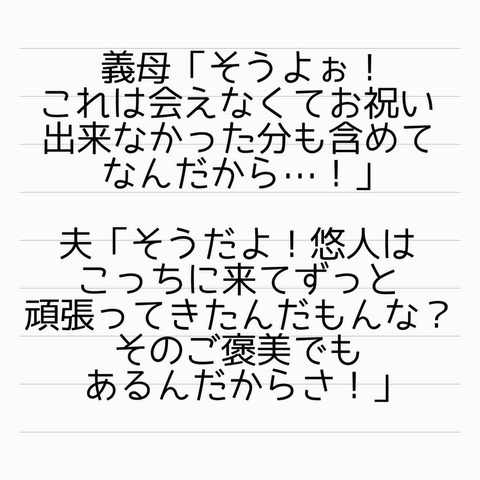 義母「そうよぉ！
これは会えなくてお祝い
出来なかった分も含めて
なんだから…！」
夫「そうだよ！悠人は
こっちに来てずっと
頑張ってきたんだもんな？
そのご褒美でも
あるんだからさ！」